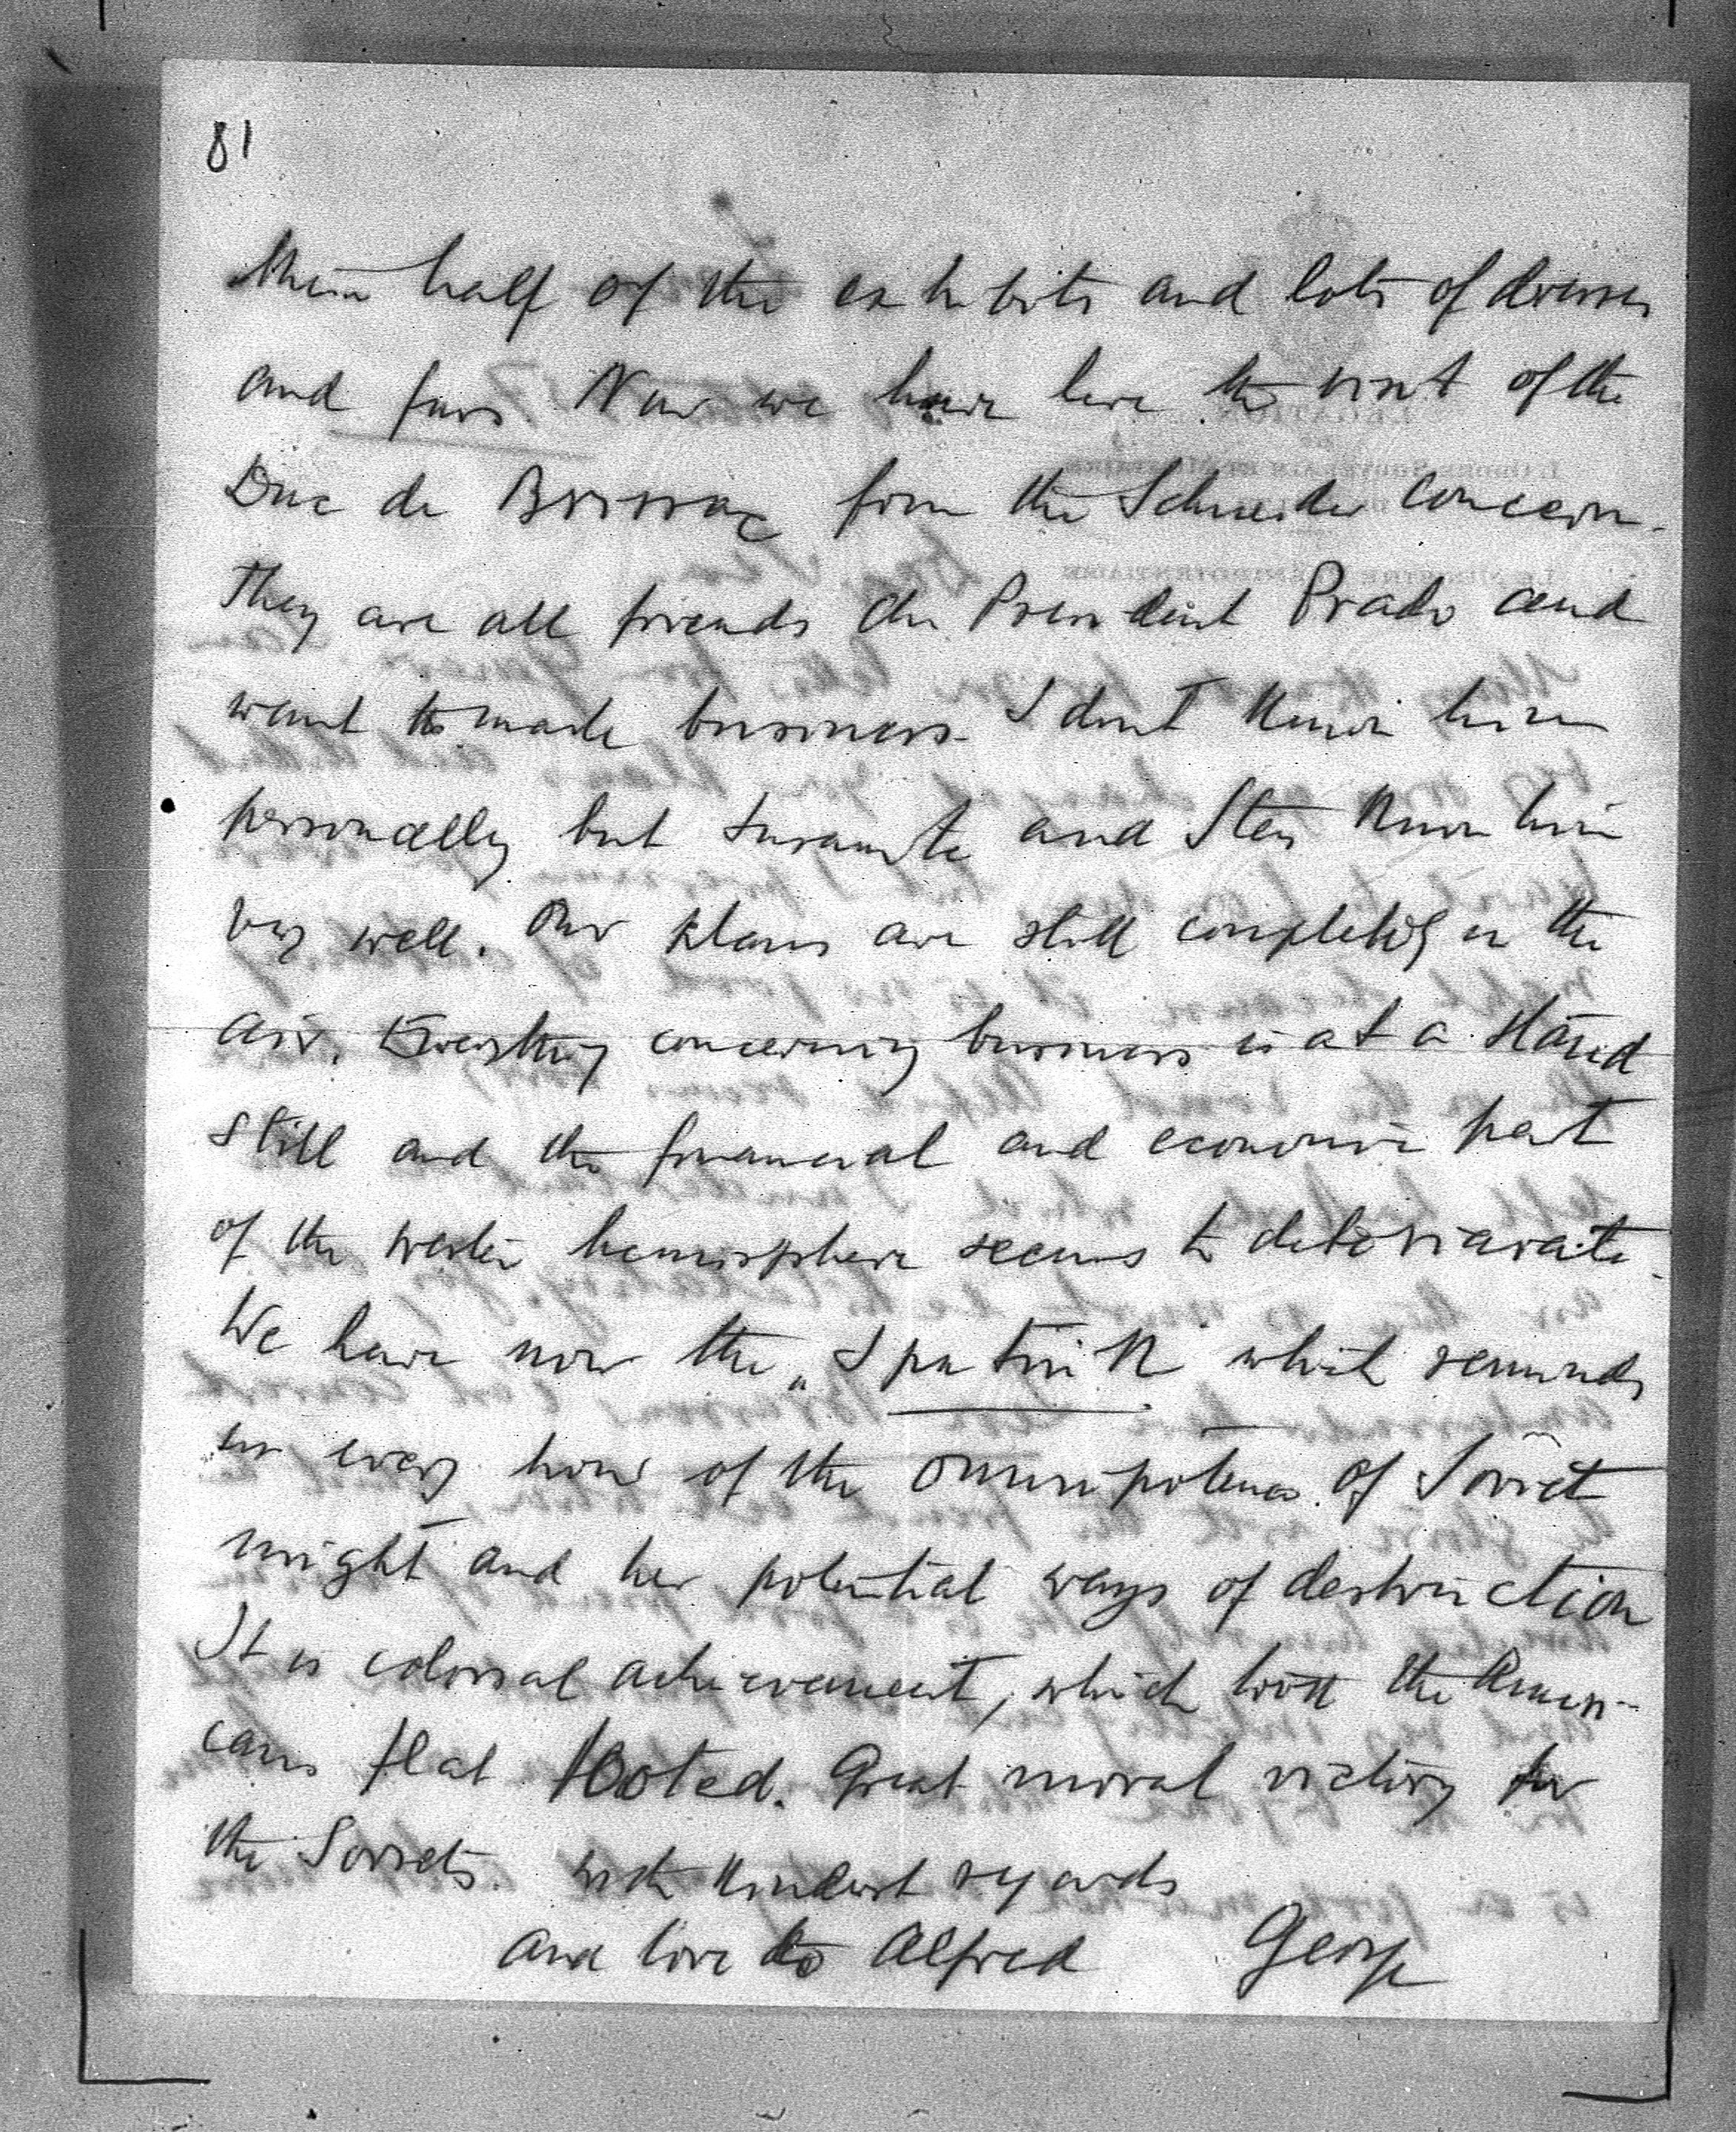 81
them half of the exhibits and lots of dresses
and furs. Now we have here the visit of the
Duc de Brissac from the Schneider concern.
They are all friends du President Prado and
want to made business. I dont know him
personally but and know him
very well. Our plans are still completely in the
air. Everything concerning business is at a stand
still and the financial and economic part
of the western hemisphere seems to deteriorate.
We have now the „Sputnik" which reminds
us every hour of the omnipotence of Soviet
might and her potential ways of destruction
It is colossal achievement, which took the Ameri-
cans flat footed. Great moral victory for
the Soviets. with kindest regards
and love to Alfred George